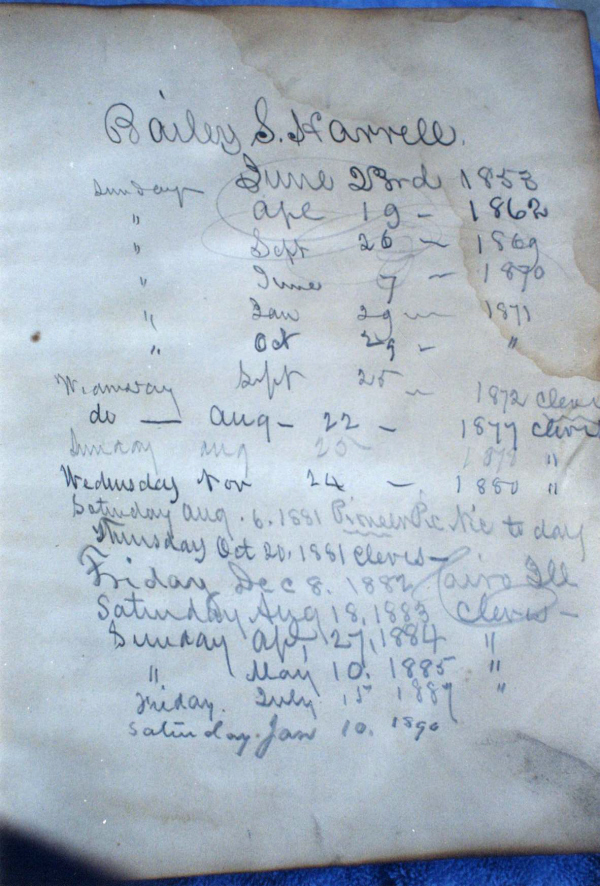 Bailey S. Harrell.
Sunday June 23rd 1858
" Ape 19 - 1862
" Sept 26 - 1869
" June 7 - 1870
" Jan 29 - 1871
" Oct 29 - "
Sept 25 -
Wednesday 1872 Clevis
do — Aug - 22 - 1877 Clevis
Sunday Aug 25 - 1878 "
Wednesday Nov 24 - 1880 "
Saturday Aug. 6. 1881 Pioneer Pic Nic to day
Thursday Oct 20. 1881 Clevis -
Friday Dec 8. 1882 Cairo Ill
Saturday Aug 18, 1883 Clevis -
Sunday Ap, 27, 1884 "
" May 10. 1885 "
Friday. July 15 1887 "
Saturday. Jan 10. 1890